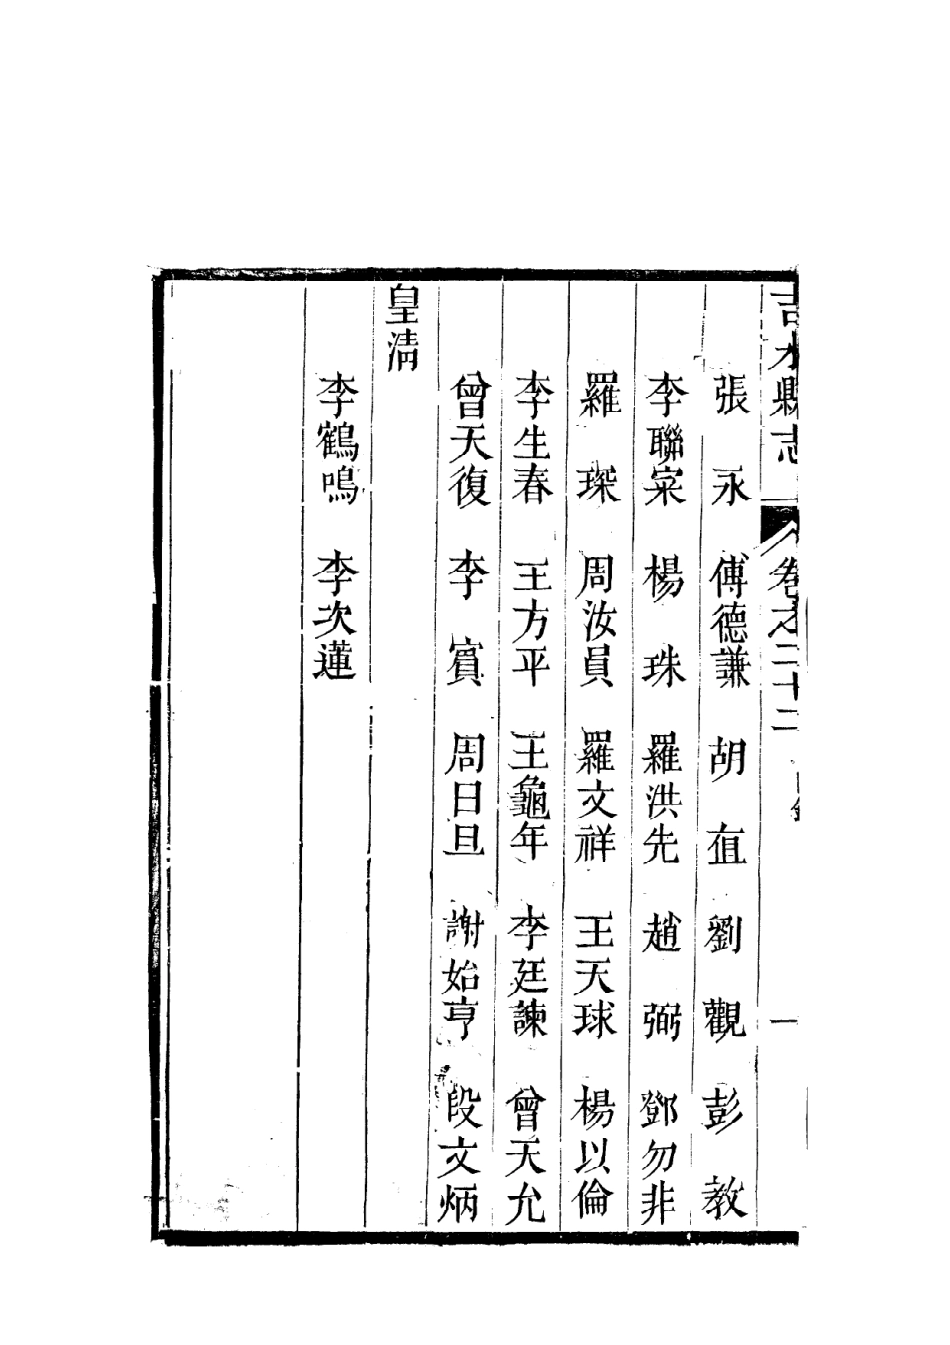 吉水縣志 卷之二十二 目錄 一
張永 傅德謙 胡直 劉觀 彭教
李聯寀 楊珠 羅洪先 趙弼 鄧勿非
羅琛 周汝員 羅文祥 王天球 楊以倫
李生春 王方平 王龜年 李廷諫 曾天允
曾天復 李賔 周日旦 謝始亨 段文炳
皇淸
李鶴鳴 李次蓮